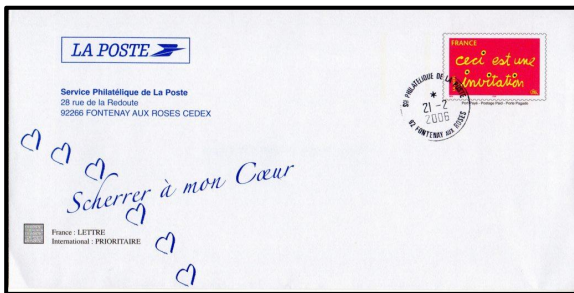 LA POSTE
Service Philatélique de La Poste
28 rue de la Redoute
92266 FONTENAY AUX ROSES CEDEX
FRANCE
ceci est une
invitation
Port Payé - Postage Paid - Porte Pagado
SCE PHILATÉLIQUE DE LA POSTE
21 - 2
2006
92 FONTENAY AUX ROSES
Scherrer à mon Cœur
France : LETTRE
International : PRIORITAIRE